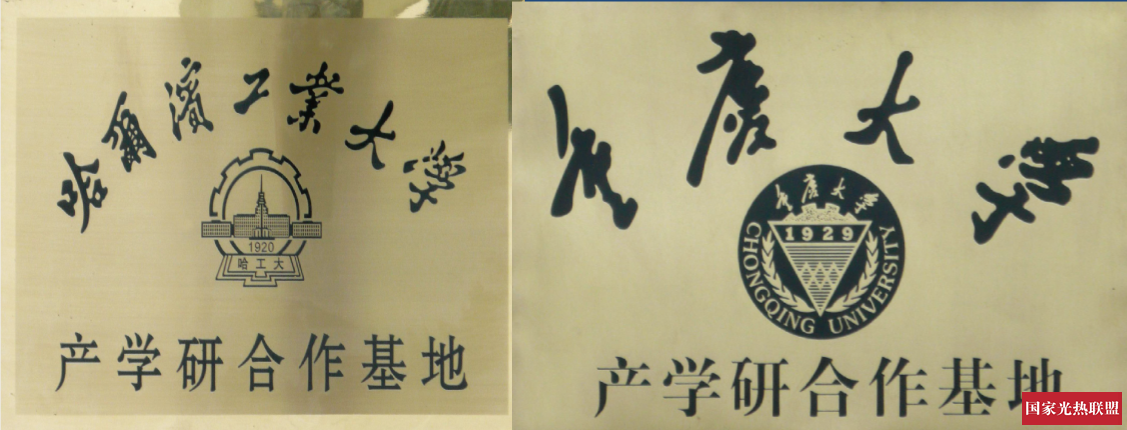 哈爾濱工業大学
1920
哈工大
产学研合作基地
重庆大学
重庆大学
1929
CHONGQING UNIVERSITY
产学研合作基地
国家光热联盟